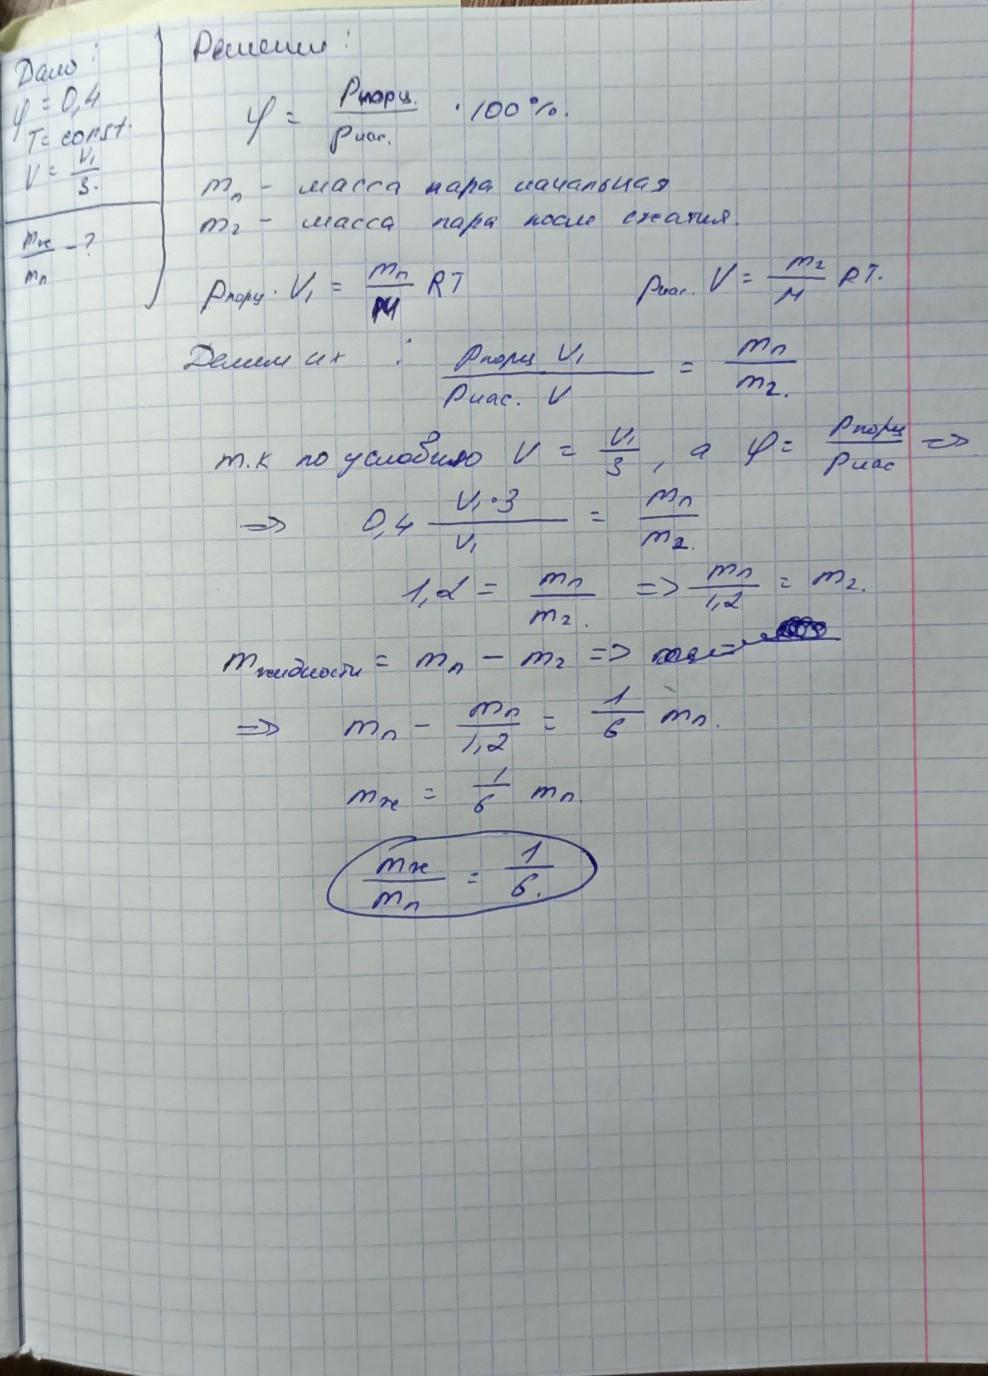 Дано:
φ = 0,4
T = const.
V = V₁/3.
mж/mп - ?
Решение:
φ = Pпорц./Pнас. · 100%.
mп - масса пара начальная
m₂ - масса пара после сжатия.
Pпорц · V₁ = mп/M RT   Pнас. V = m₂/M RT.
Делим их : Pпорц V₁/Pнас. V = mп/m₂.
т.к по условию V = V₁/3, а φ = Pпорц/Pнас =>
=> 0,4 V₁·3/V₁ = mп/m₂.
1,2 = mп/m₂. => mп/1,2 = m₂.
mжидкости = mп - m₂ =>
=> mп - mп/1,2 = 1/6 mп.
mж = 1/6 mп.
mж/mп = 1/6.